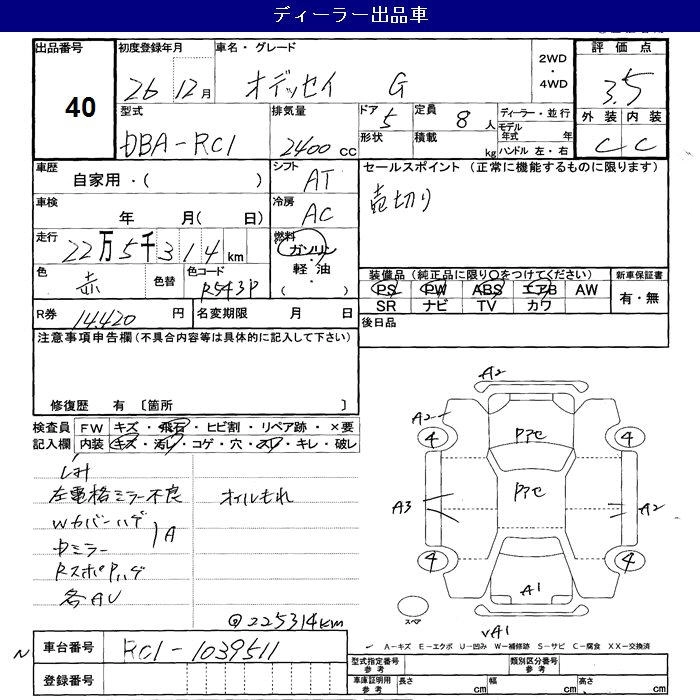 ディーラー出品車
出品番号 初度登録年月 車名・グレード 2WD・4WD 評価点
40 26 12月 オデッセイ G 3.5
型式 排気量 ドア 定員 ディーラー・並行 外装 内装
DBA-RC1 2400cc 5 8人 モデル年式 年 C C
形状 積載 kg ハンドル 左・右
車歴 シフト セールスポイント (正常に機能するものに限ります)
自家用・( ) AT 売切り
車検 冷房
年 月( 日) AC
走行 燃料
22万5千314km ガソリン・軽油( )
色 色替 色コード 装備品 (純正品に限り○をつけてください) 新車保証書
赤 R543P PS PW ABS エアB AW 有・無
SR ナビ TV カワ
R券 14,420円 名変期限 月 日 後日品
注意事項申告欄 (不具合内容等は具体的に記入して下さい)
修復歴 有 〔箇所 〕
検査員 FW キズ・飛石・ヒビ割・リペア跡・×要
記入欄 内装 キズ・汚レ・コゲ・穴・スレ・キレ・破レ
左電格ミラー不良 オイルもれ
Wカバーハゲ
中ミラー A
RスポPハゲ
各AU
@225314km
車台番号 RC1-1039511
登録番号
A2
A2
4 4
Pアセ
Pアセ
A3 A2
4 4
A1
スペア
A1
A-キズ E-エクボ U-凹み W-補修跡 S-サビ C-腐食 XX-交換済
型式指定番号 参考 類別区分番号 参考
車庫証明用 参考 長さ cm 幅 cm 高さ cm